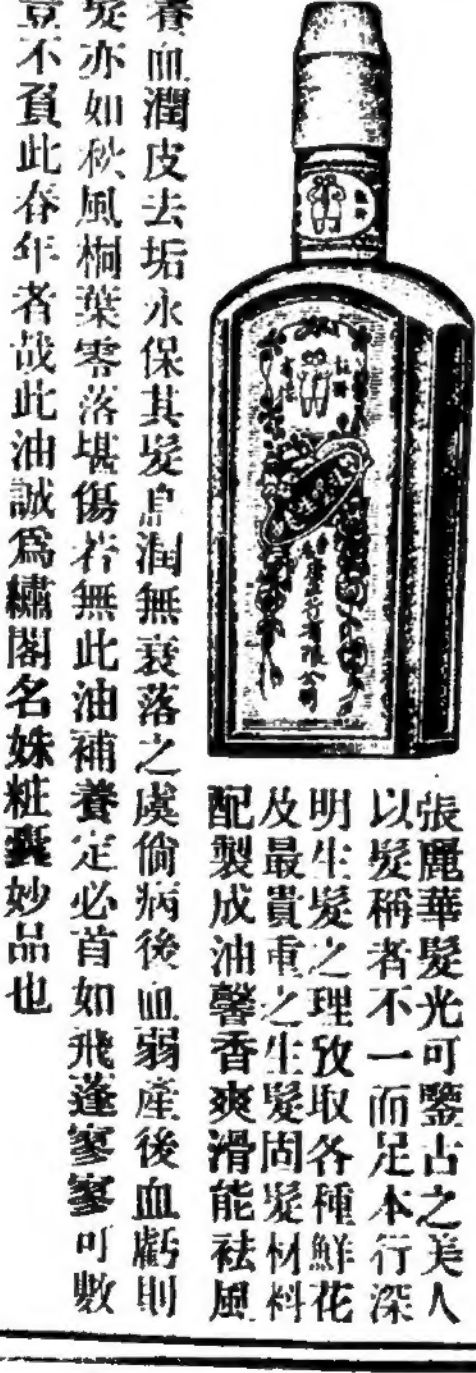 張麗華髮光可鑒古之美人
以髮稱者不一而足本行深
明生髮之理攷取各種鮮花
及最貴重之生髮固髮材料
配製成油馨香爽滑能袪風
養血潤皮去垢永保其髮烏潤無衰落之虞倘病後血弱產後血虧則
髮亦如秋風桐葉零落堪傷若無此油補養定必首如飛蓬寥寥可數
豈不負此春年者哉此油誠爲繡閣名姝粧奩妙品也